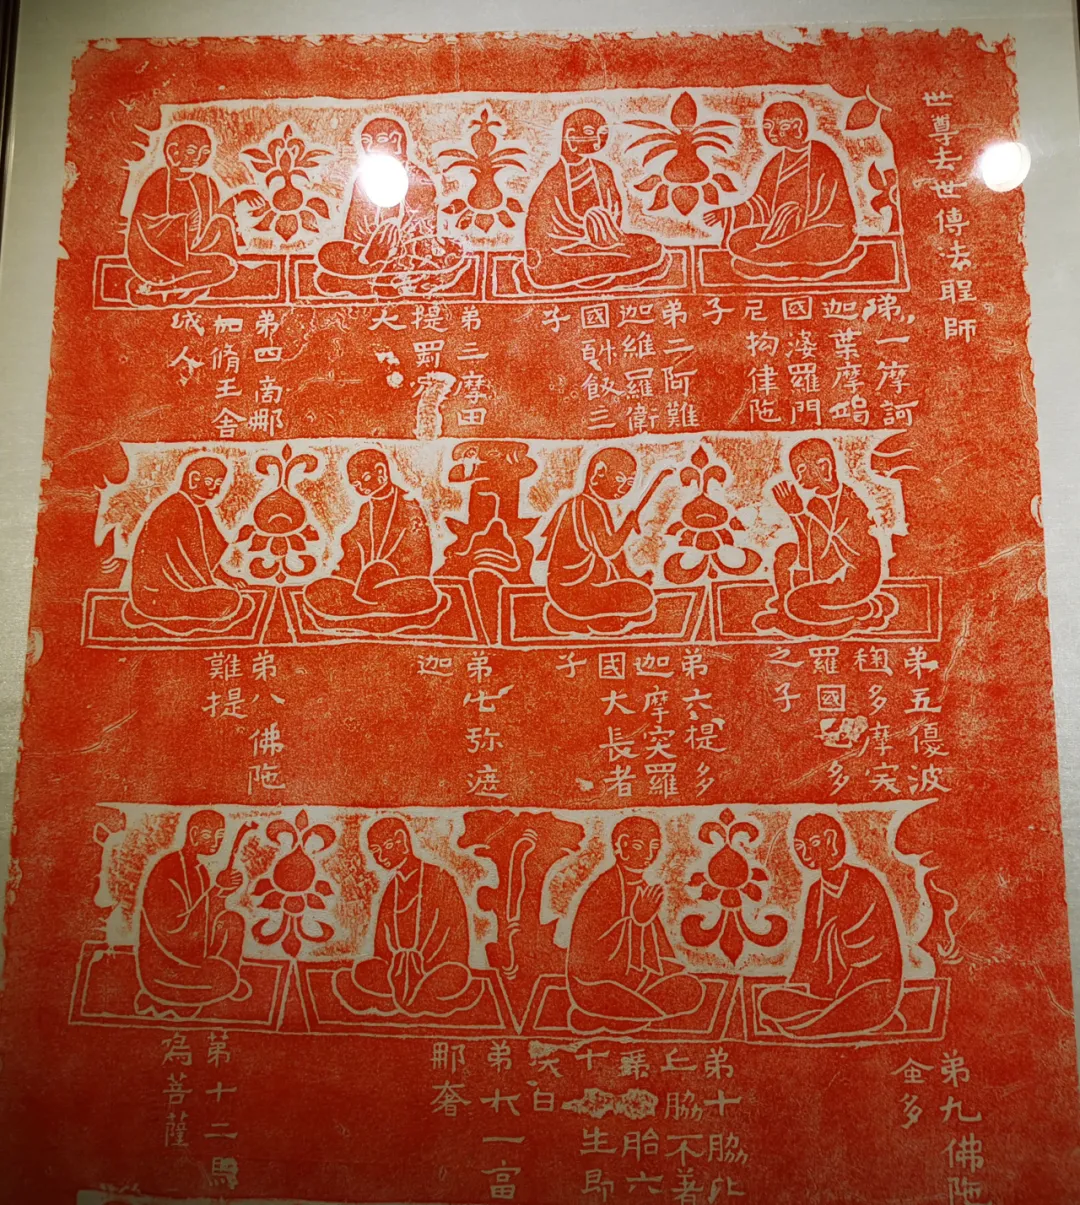 世尊去世傳法聖師
弟一摩訶
迦葉摩竭
國婆羅門
尼拘律陁
子
弟二阿難
迦維羅衛
國斛飯王
子
弟三摩田
提罽賓
人
弟四商那
和脩王舍
城人
弟五優波
毱多摩突
羅國多
之子
弟六提多
迦摩突羅
國大長者
子
弟七弥遮
迦
弟八佛陁
難提
弟九佛陁
蜜多
弟十脇比
丘脇不著
胎六
十生即
白
弟十一富
那奢
第十二馬
鳴菩薩